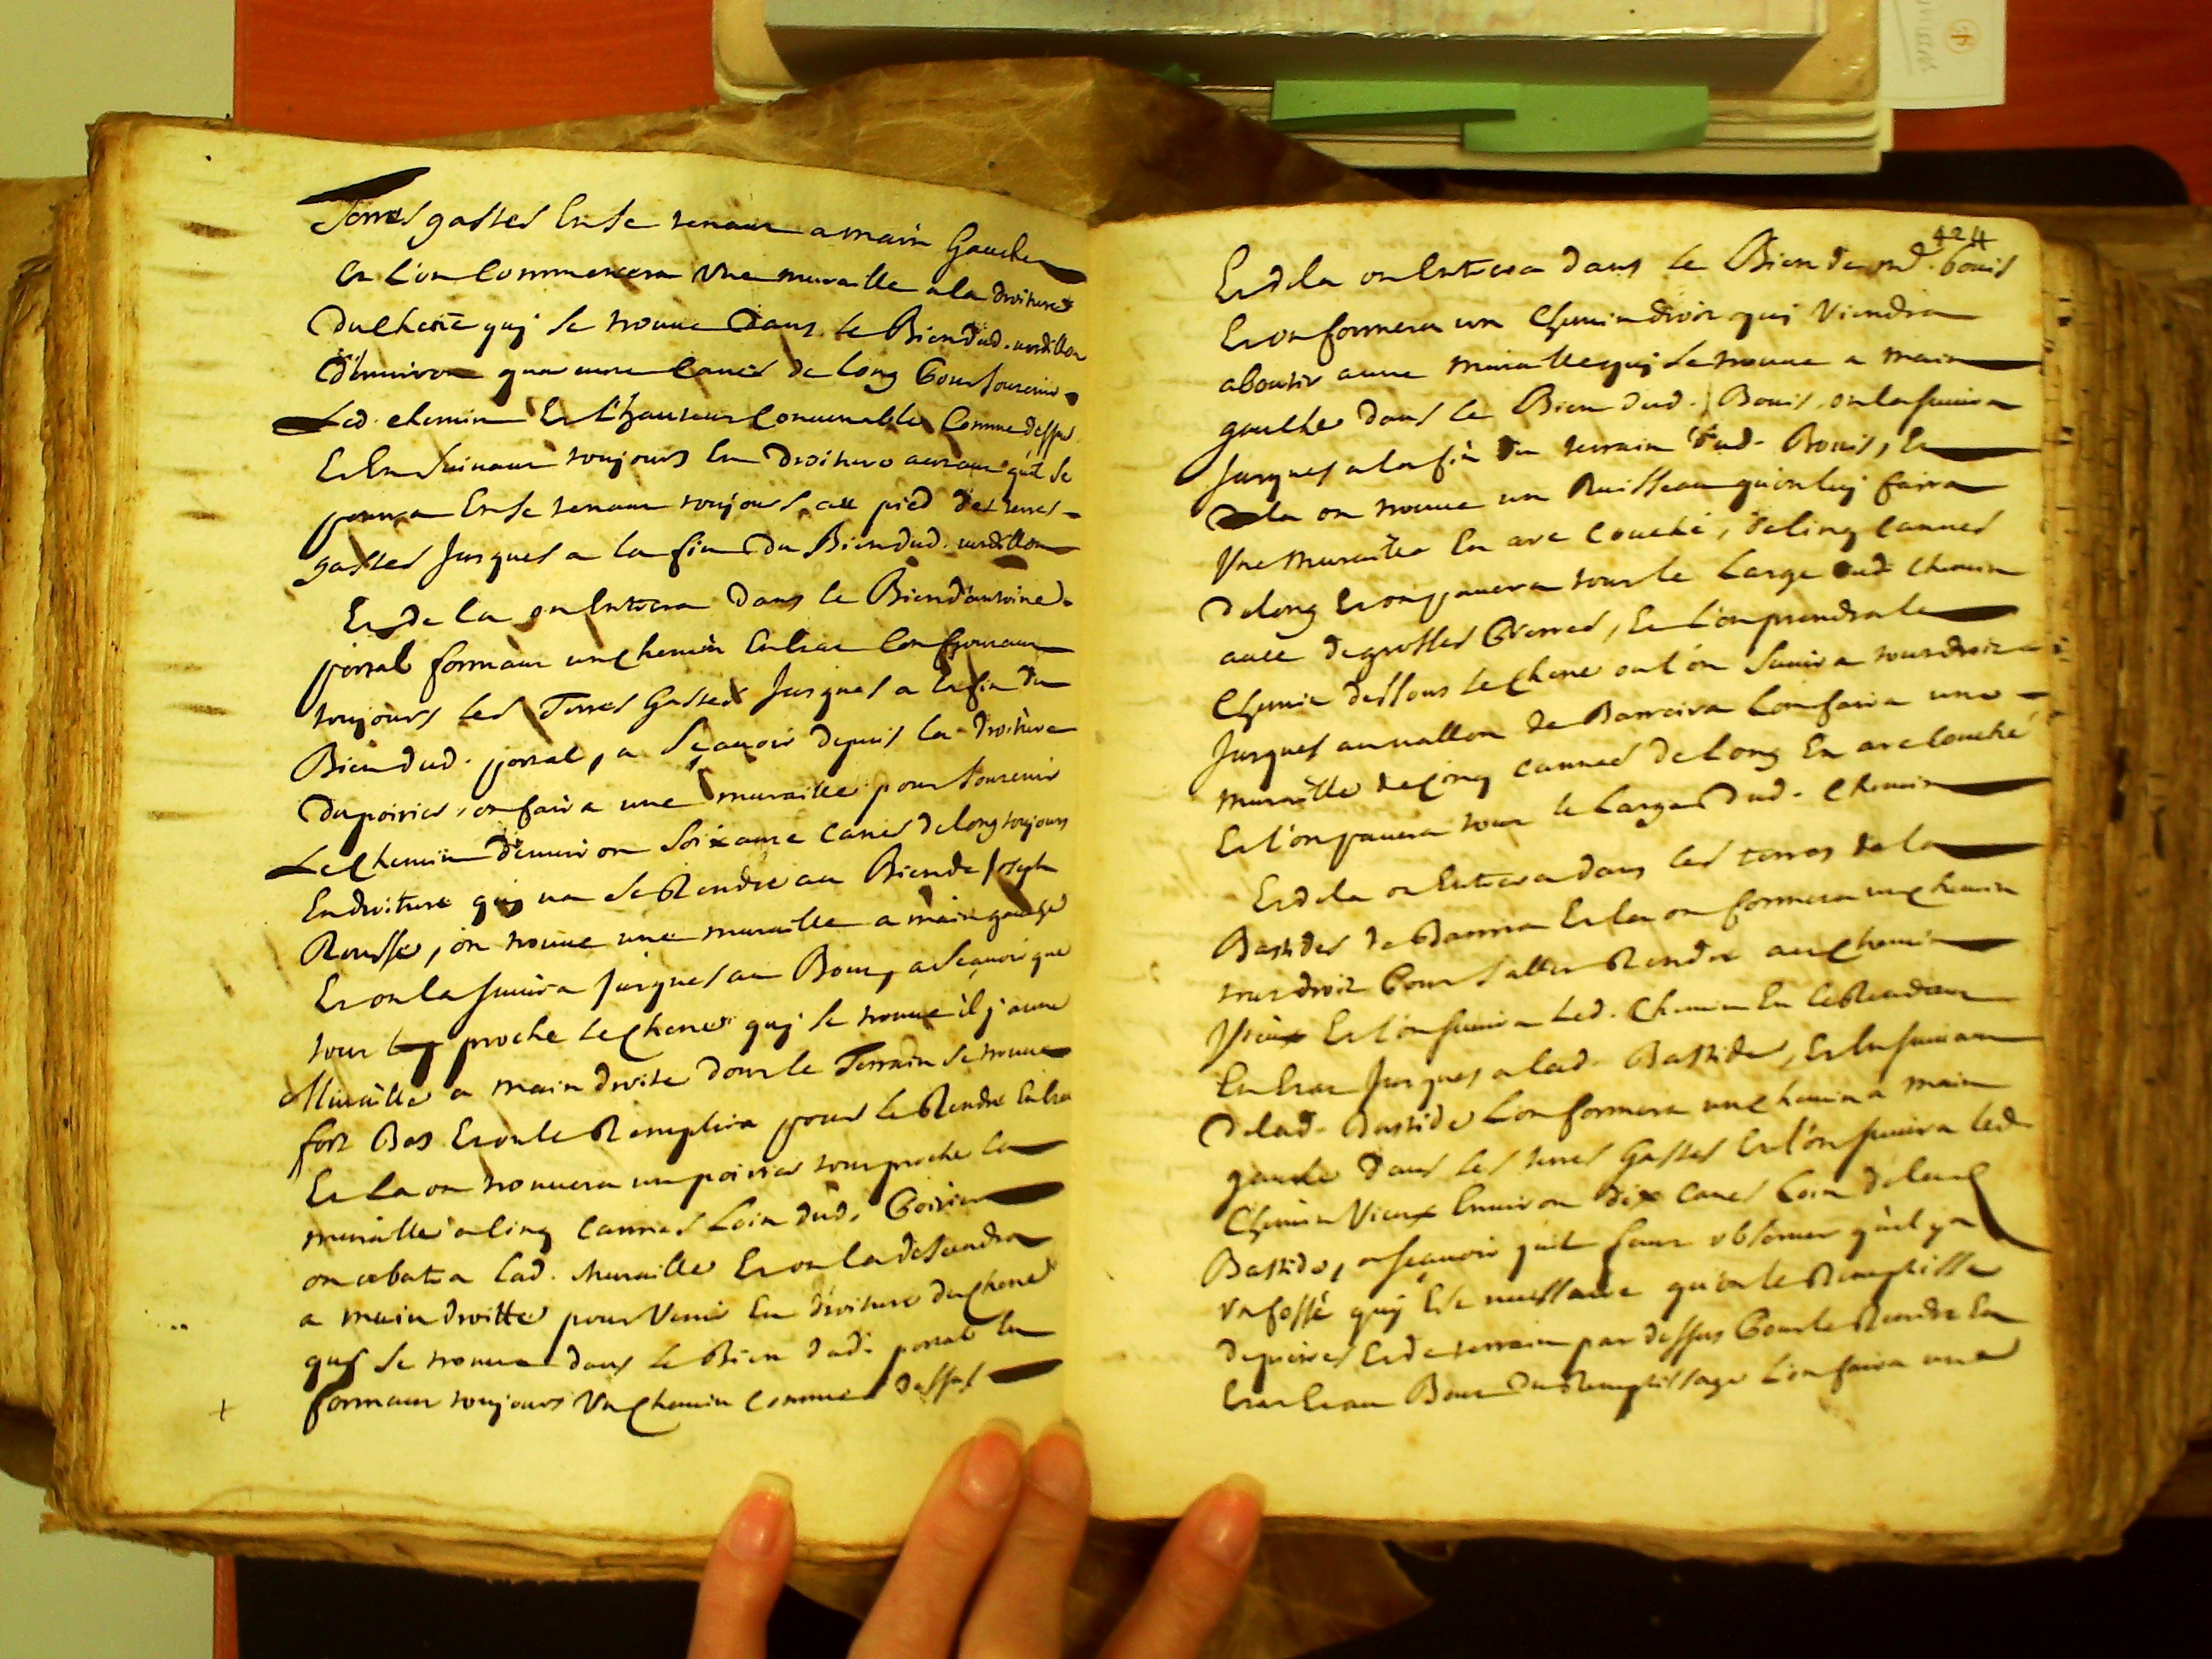 Terres gastes En se tenant a main Gauche
Et L'on Commencera Une muraille a la droiture
Du chene quj se trouve Dans le Bien dud. verdillon
D'environ quarante Canes de Long Pour soutenir
Led. chemin Et L'hauteur Convenable Comme dessus
Et En suivant toujours En droiture autant qu'il se
pourra En se tenant toujours au pied des terres
gastes Jusques a la fin Du Bien dud. verdillon
Et de la on Entrera Dans le Bien d'antoine
porral formant un chemin En Etat Confrontant
toujours les Terres Gastes Jusques a la fin du
Bien dud. porral, a Sçavoir depuis la droiture
Du poirier, on faira une muraille pour soutenir
Le chemin d'environ soixante Canes de long toujours
En droiture quj va se Rendre au Bien de Joseph
Rousse, on trouve une muraille a main gauche
Et on la suivra jusques au Bout, a Sçavoir que
tout proche le chene quj se trouve il j a une
Muraille a main droite dont le Terrain se trouve
fort Bas Et on le Remplira pour le Rendre En Etat
Et La on trouvera un poirier tout proche la
muraille a cinq Cannes Loin dud. Poirier
on abatra Lad. Muraille Et on la descendra
a main droitte pour Venir En droiture du chene
quj se trouve dans le Bien dud. porral En
formant toujours Un chemin Comme dessus
424
Et de la on Entrera dans le Bien de md. Bouis
Et on formera un Chemin droit quj Viendra
aboutir a une muraille quj se trouve a main
gauche dans le Bien dud. Bouis, on la suivra
Jusques a la fin du terrain dud. Bouis, Et
De la on trouve un Ruisseau qu'on luj faira
Une Muraille En arc Couché, de cinq Cannes
de long Et on pavera tout le Large dud. Chemin
avec de grosses Pierres, Et L'on prendra le
Chemin dessous le chene ou l'on suivra tout droit
Jusques au vallon de Barreira L'on faira une
muraille de Cinq Cannes de Long En arc Couché
Et l'on pavera tout le Large dud. Chemin
Et de la on Entrera dans les terres de la
Bastide de Et la on formera un chemin
tout droit Pour s'aller Rendre au chemin
Vieux Et l'on suivra Led. Chemin En le Rendant
En Etat Jusques a lad. Bastide, Et En suivant
De lad. Bastide L'on formera un chemin a main
gauche dans les terres Gastes Et l'on suivra led.
Chemin Vieux Environ dix Canes Loin de lad.
Bastide, a sçavoir qu'il faut observer qu'il y a
Un fossé quj Est nessaire qu'on le Remplisse
de pierres Et de terrain par dessus Pour le Rendre En
Etat Et au Bout du Remplissage L'on faira une